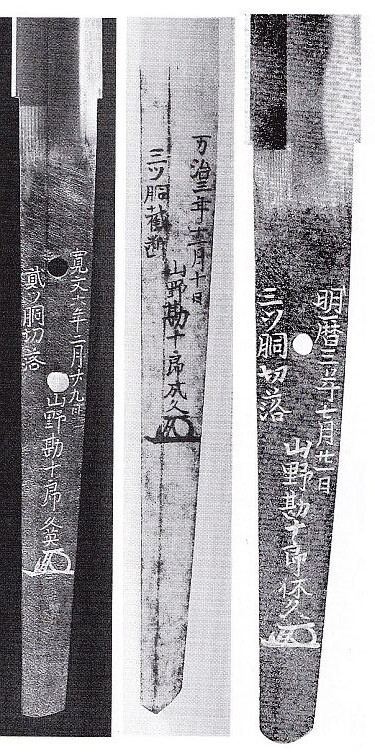 明暦三年七月廿一日
三ツ胴切落
山野勘十郎休久
万治三年十二月十日
三ツ胴截断
山野勘十郎成久
寛文十年二月廿九日
貳ツ胴切落
山野勘十郎久英